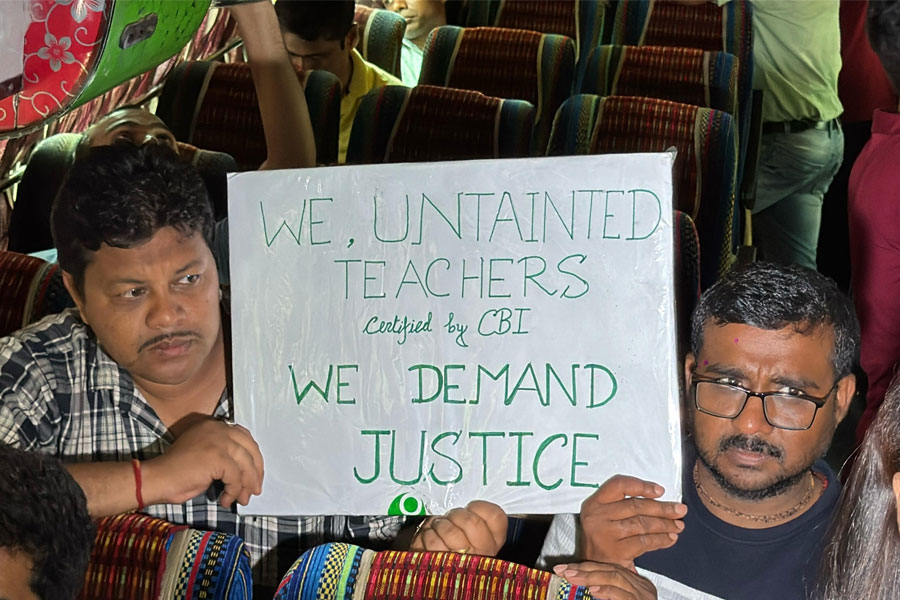 WE, UNTAINTED
TEACHERS
Certified by CBI
WE DEMAND
JUSTICE